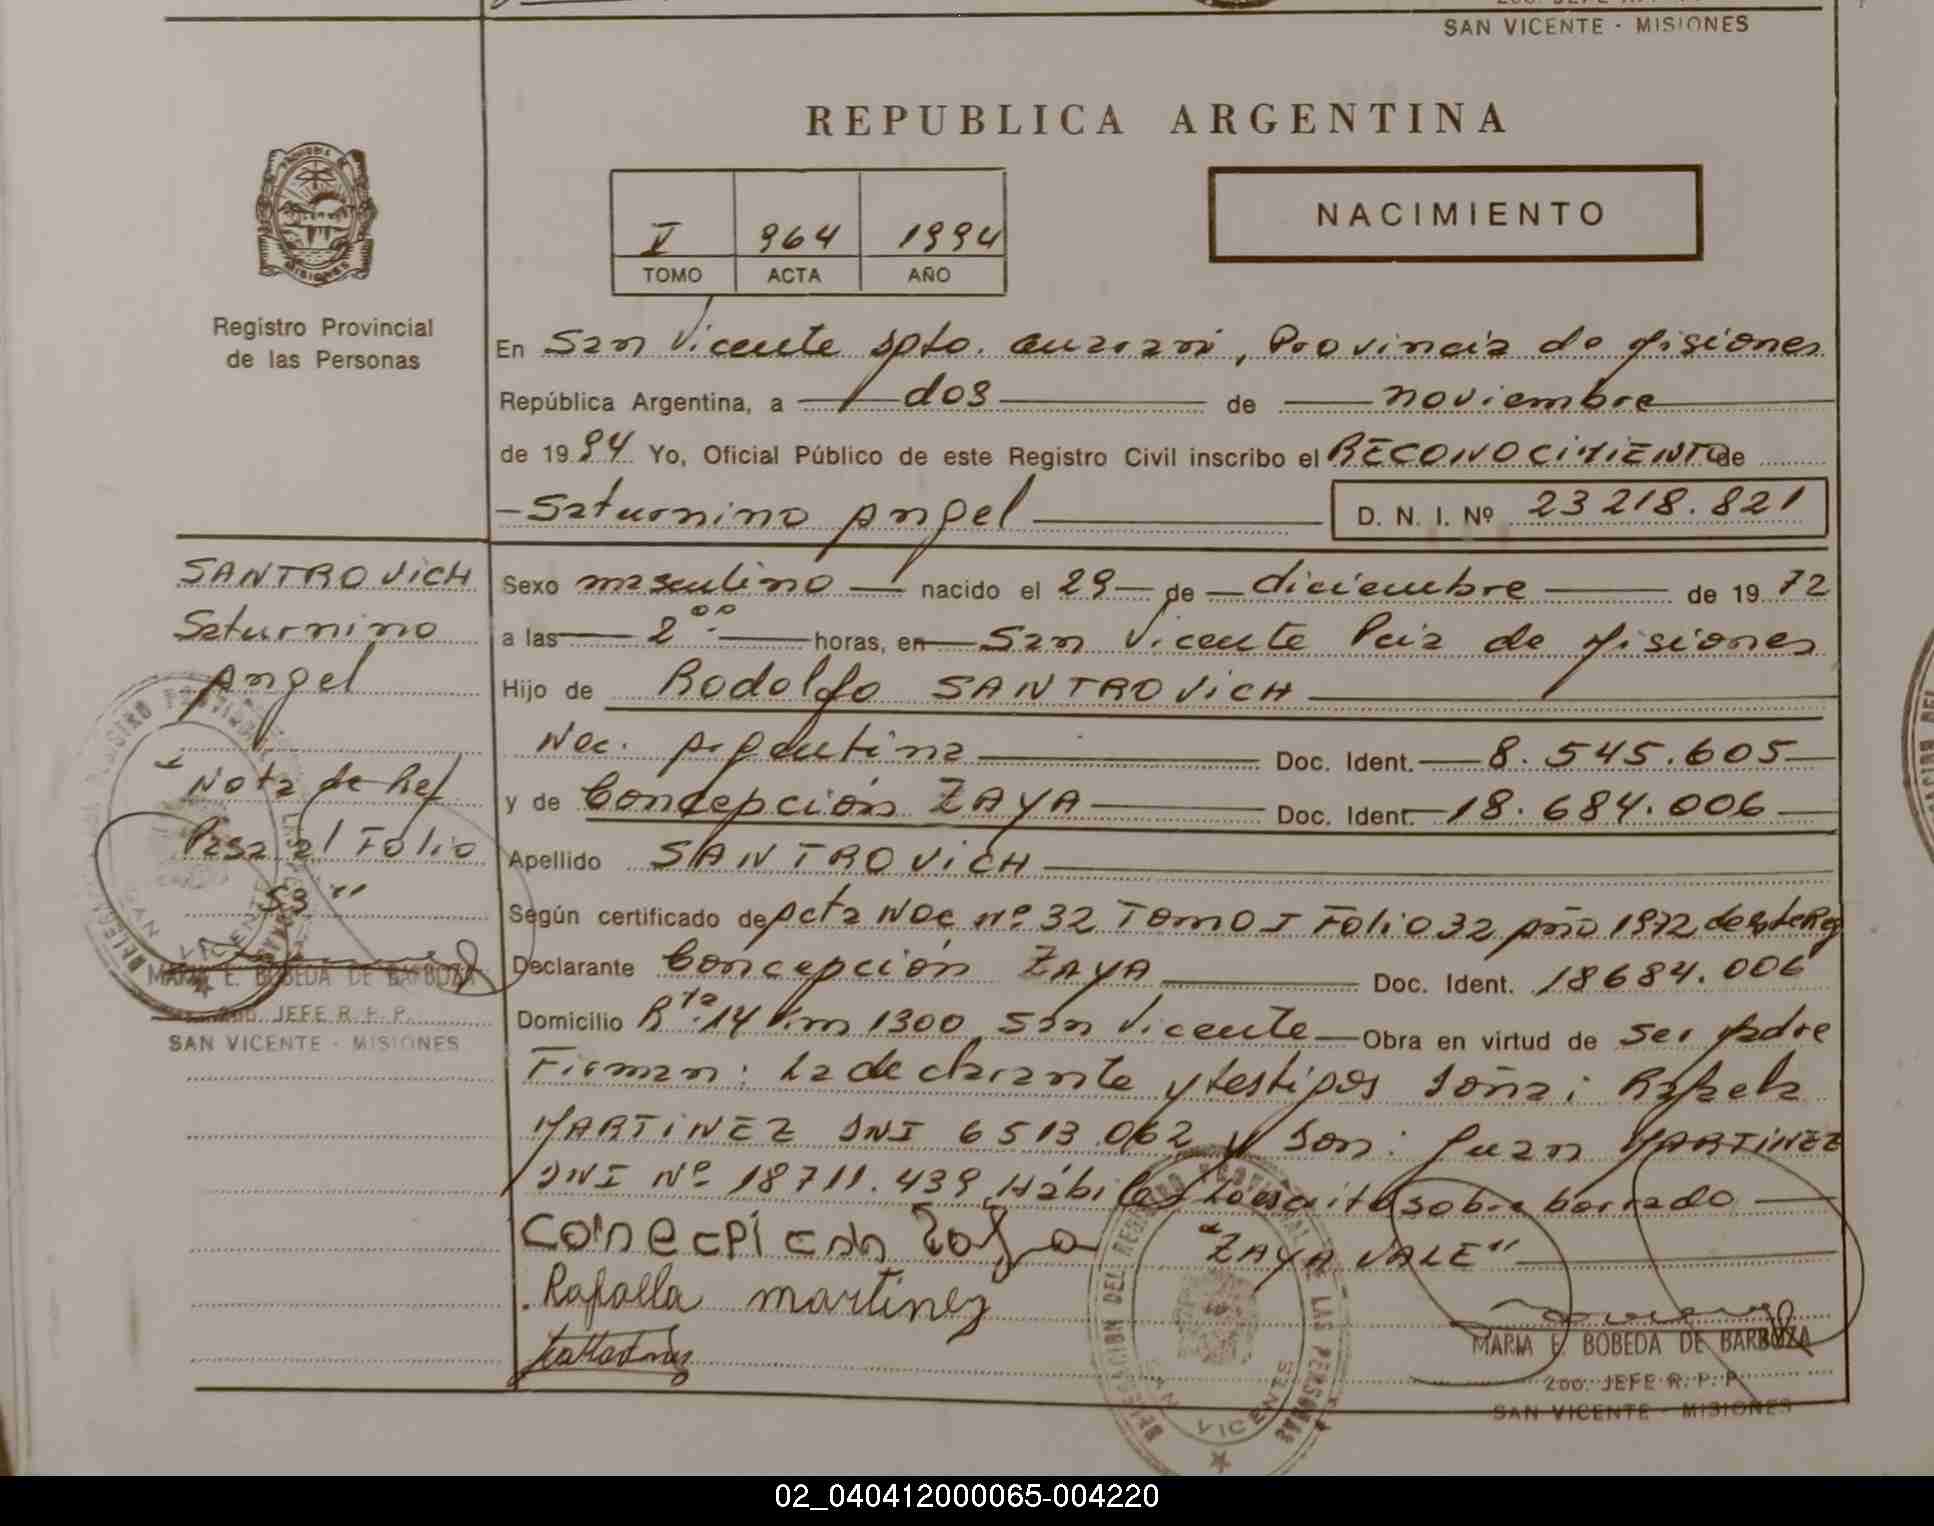 SAN VICENTE - MISIONES
REPUBLICA ARGENTINA
PROVINCIA DE
MISIONES
Registro Provincial
de las Personas
I 964 1994
TOMO ACTA AÑO
NACIMIENTO
En San Vicente Dpto. Guarani, Provincia de Misiones
República Argentina, a dos de noviembre
de 1994 Yo, Oficial Público de este Registro Civil inscribo el RECONOCIMIENTO de
Saturnino Angel D. N. I. Nº 23 218.821
SANTROVICH
Saturnino
Angel
"Nota de Ref
Pasa al Folio
53"
MARIA E. BOBEDA DE BARBOZA
2do. JEFE R. P. P.
SAN VICENTE - MISIONES
Sexo masculino nacido el 29 de diciembre de 1972
a las 2 00 horas, en San Vicente Pcia de Misiones
Hijo de Rodolfo SANTROVICH
Nac. Argentina Doc. Ident. 8.545.605
y de Concepción ZAYA Doc. Ident. 18.684.006
Apellido SANTROVICH
Según certificado de Acta Nac Nº 32 Tomo I Folio 32 Año 1972 de este Reg
Declarante Concepción ZAYA Doc. Ident. 18684.006
Domicilio Rta. 14 Km 1300 San Vicente Obra en virtud de ser padre
Firman: La declarante y testigos Doña: Rafaela
MARTINEZ DNI 6513.062 y Don: Juan MARTINEZ
DNI Nº 18711.439 Hábiles Lo escrito sobre borrado
"ZAYA VALE"
Conecpicon Zaya
Rafaella martinez
MARIA E. BOBEDA DE BARBOZA
2do. JEFE R. P. P.
SAN VICENTE - MISIONES
DELEGACION DEL REGISTRO PROVINCIAL DE LAS PERSONAS
SAN VICENTE
02_040412000065-004220